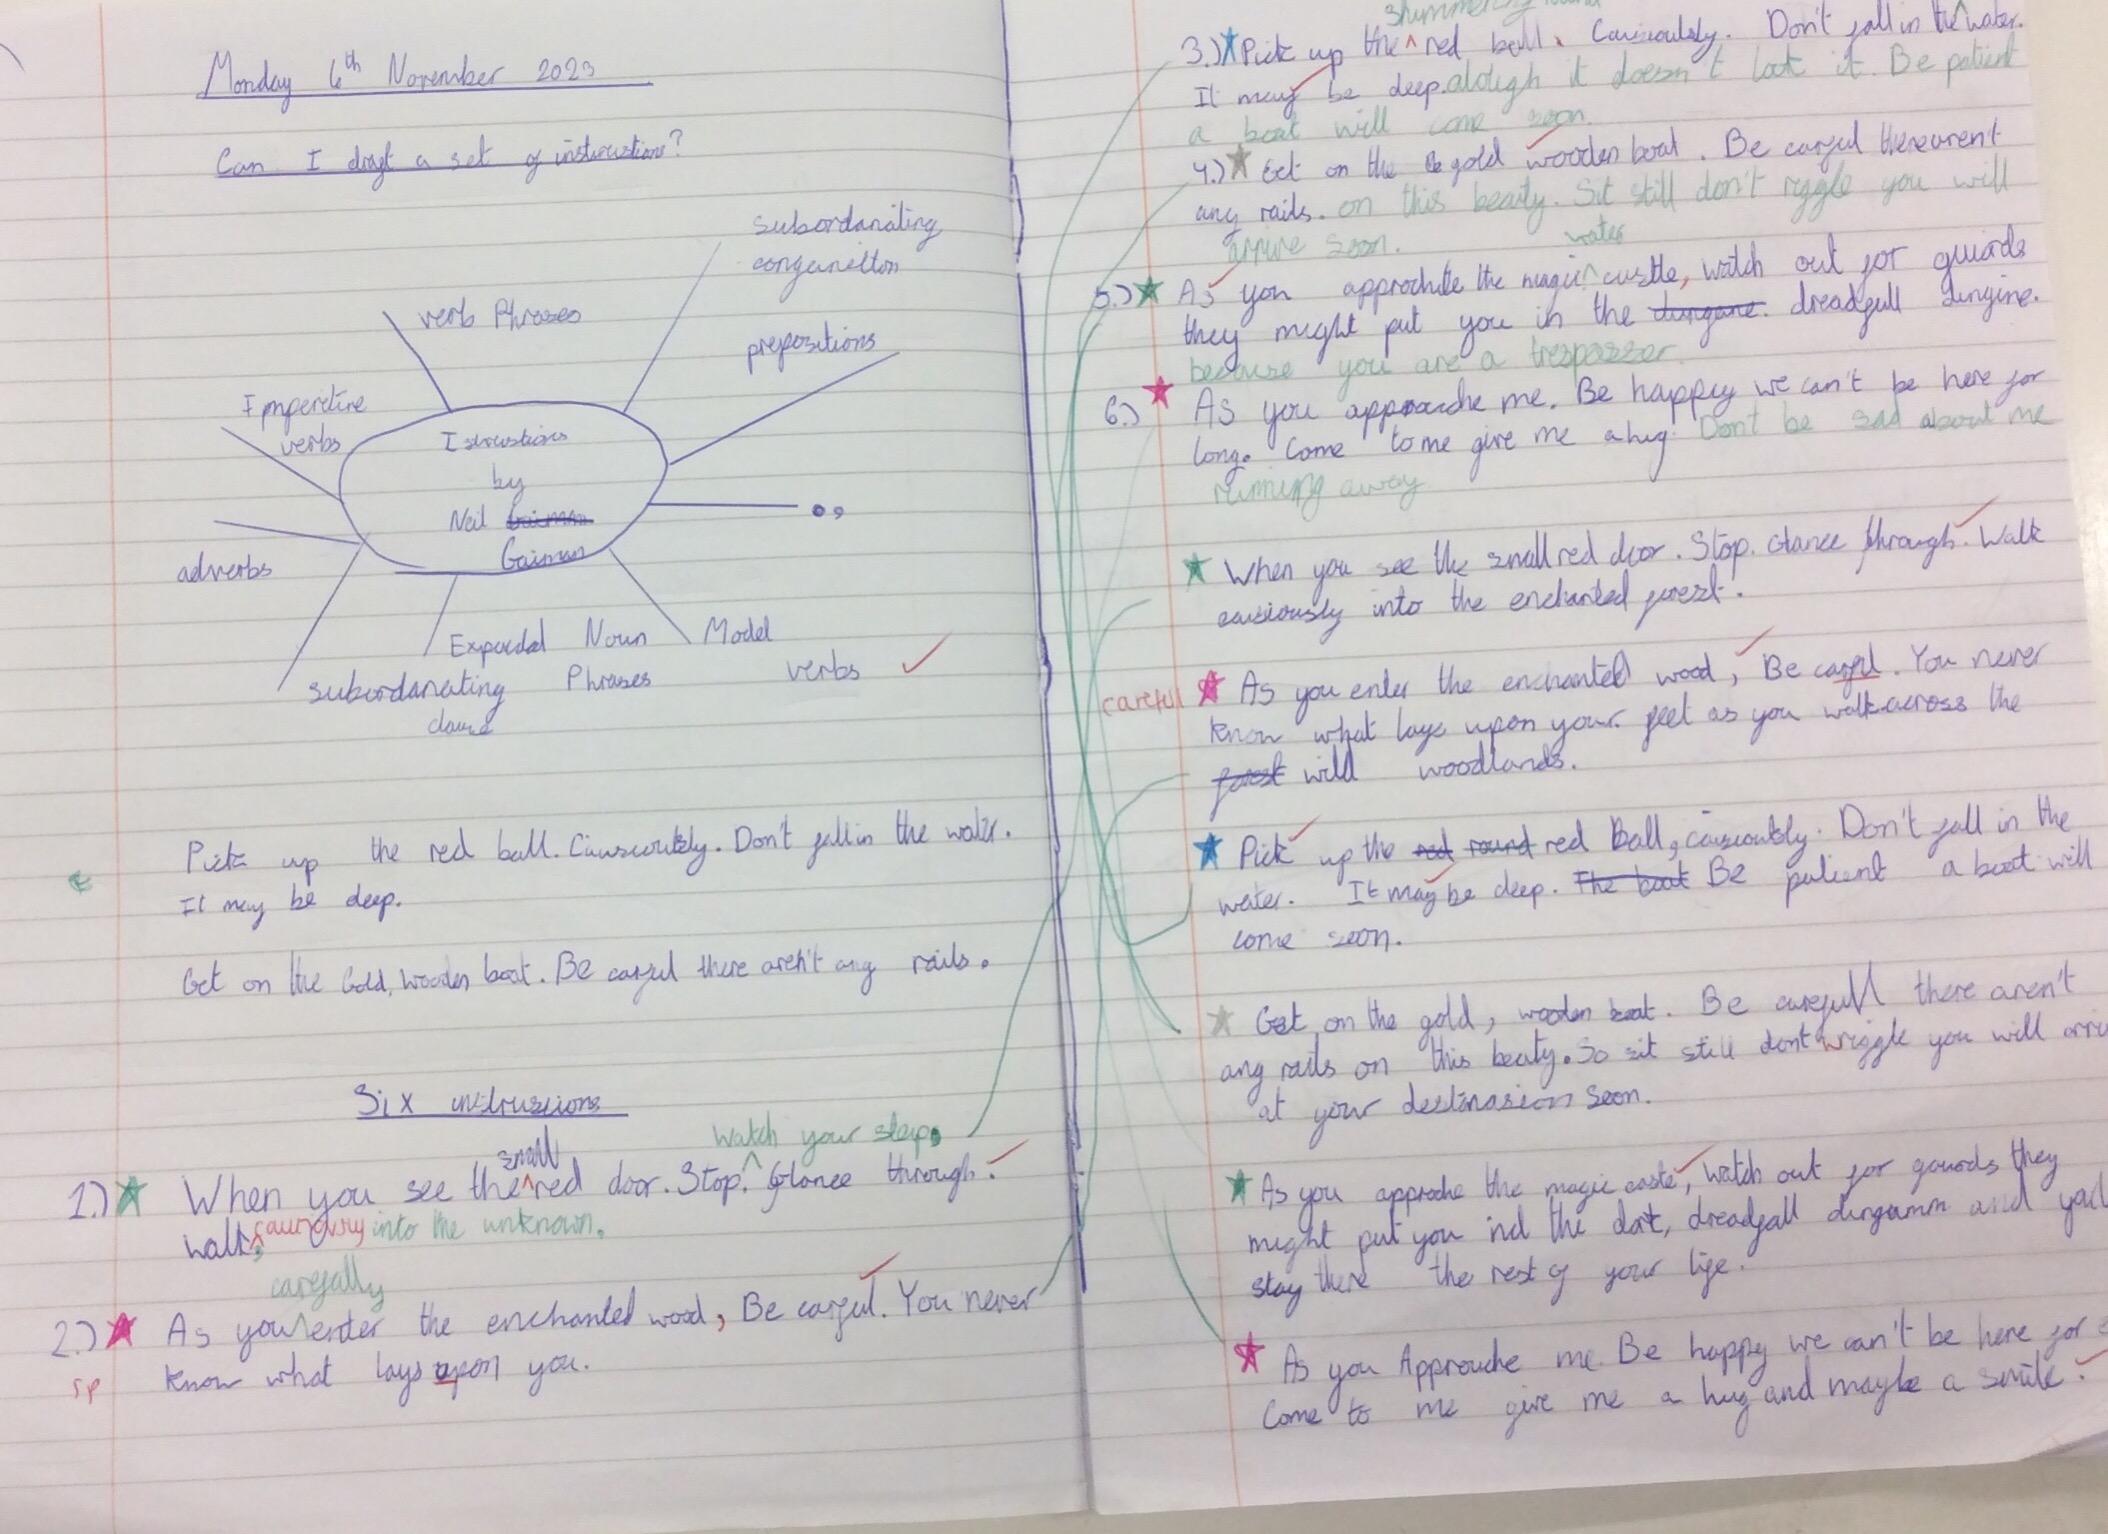 Monday 6th November 2023
Can I draft a set of instrustions?
subordanating
verb Phrases
prepositions
Imperetive
verbs
Istrustions
by
Neil
Gaiman
adverbs
Expandal Noun
Phrases
Model
verbs
subordanating
clause
Pick up the red ball. Don't fall in the water.
It may be deep.
Get on the Gold, Wooden boat. Be carful there aren't any rails.
Six
small
Watch your step.
1.) When you see the red door. Stop. Glance through.
walk into the unknown.
carefally
2.) As you enter the enchanted wood, Be carful. You never
sp know what lays upon you.
shimmering round
3.) Pick up the red ball. Don't fall in the water.
It may be deep. aldough it doesn't look it. Be patient
a boat will come soon.
4.) Get on the gold wooden boat. Be carful there arent
any rails. on this beauty. Sit still don't riggle you will
arrive soon.
water
5.) As you the magic castle, watch out for guards
they might put you in the dungane. dreadfull dungine.
because you are a trespasser.
6.) As you me. Be happy we can't be here for
long. Come to me give me a hug. Don't be sad about me
running away
When you see the small red door. Stop. Glance through. Walk
causiously into the enchanted forest.
careful As you enter the enchanted wood, Be carful. You never
know what lays upon your feet as you walk across the
forest wild woodlands.
Pick up the red round red ball, Don't fall in the
water. It may be deep. The boat Be patient a boat will
come soon.
Get on the gold, wooden boat. Be carefull there aren't
any rails on this beaty. So sit still dont wriggle you will
at your destinasion soon.
As you approche the magic castle, watch out for they
might put you the dreadfall and
stay there the rest of your life.
As you Approuche me. Be happy we can't be here for
Come to me give me a hug and maybe a smile.